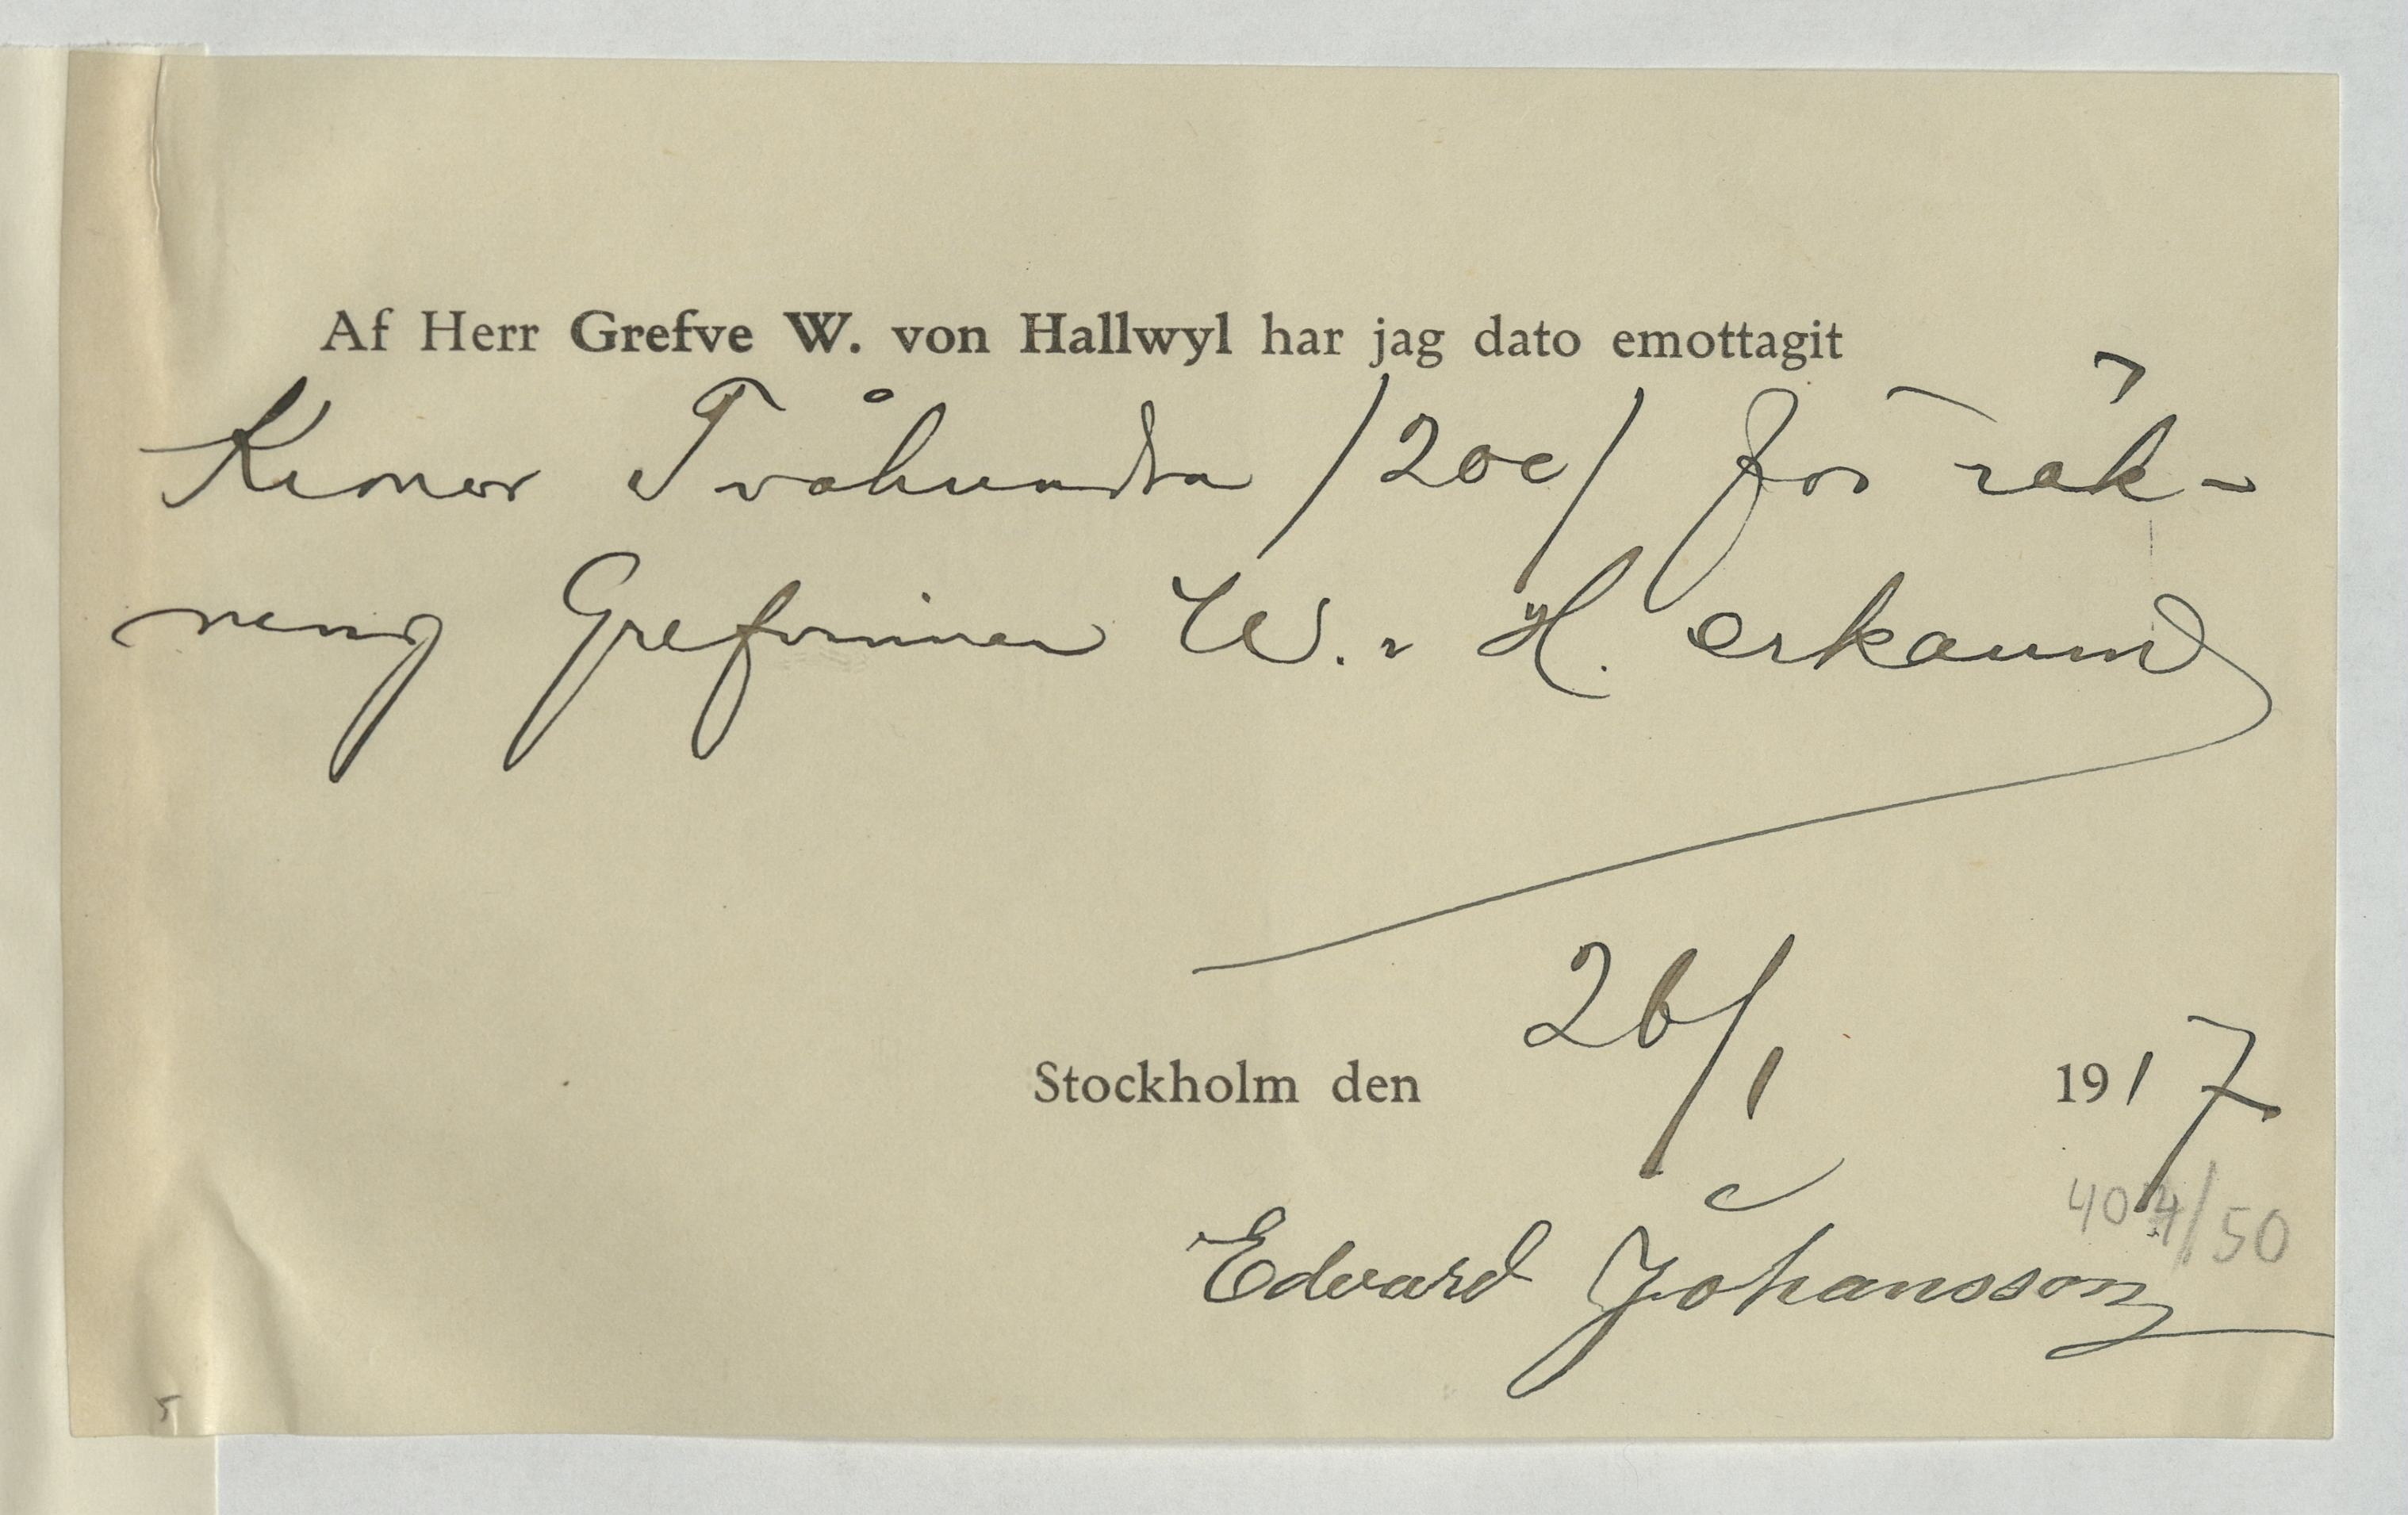 Af Herr Grefve W. von Hallwyl har jag dato emottagit
Kronor Tvåhundra /200/ för räk-
ning Grefvinnan W. v H. erkännes
26/1
Stockholm den 1917
404/50
Edvard Johansson
5